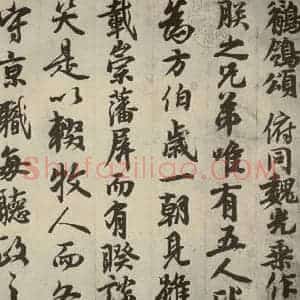 鶺鴒頌 俯同魏光乘作
朕之兄弟唯有五人比
為方伯歲一朝見雖
載崇藩屏而有暌談
笑是以輟牧人而各
守京職每聽政之
Shufaziliao.com